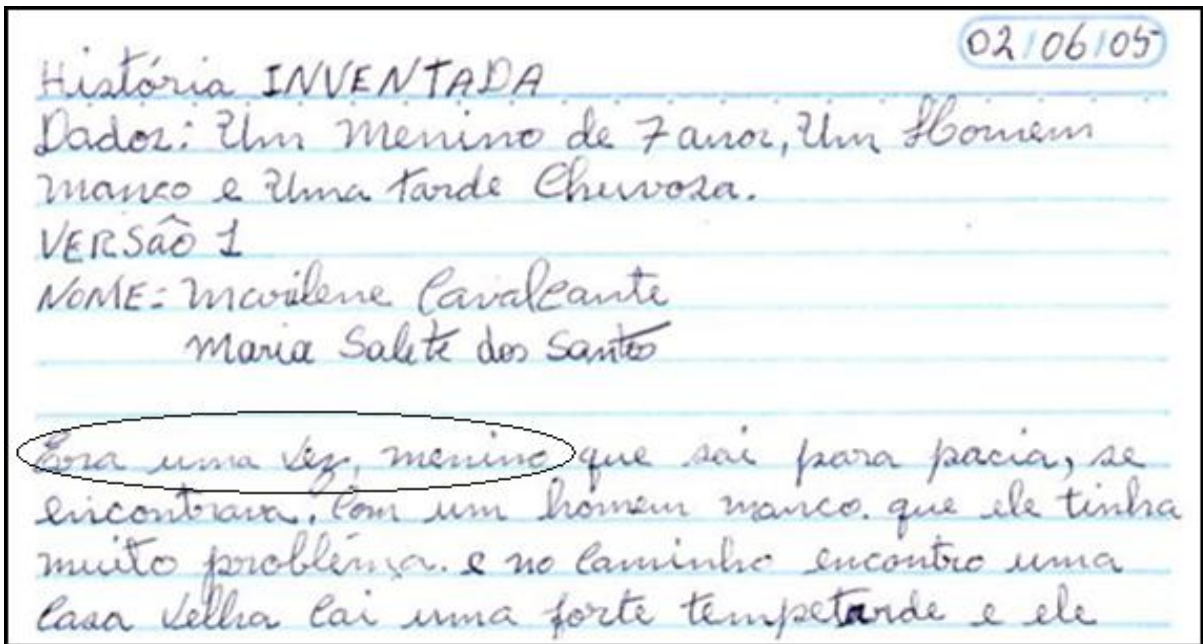 02/06/05
História INVENTADA
Dados: Um menino de 7 anos, Um Homem
manco e Uma tarde Chuvosa.
VERSÃO 1
NOME: Marilene Cavalcante
Maria Salete dos Santos
Era uma vez, menino que sai para pacia, se
encontrava. Com um homem manco. que ele tinha
muito problêma. e no Caminho encontro uma
Casa Velha Cai uma forte tempetarde e ele